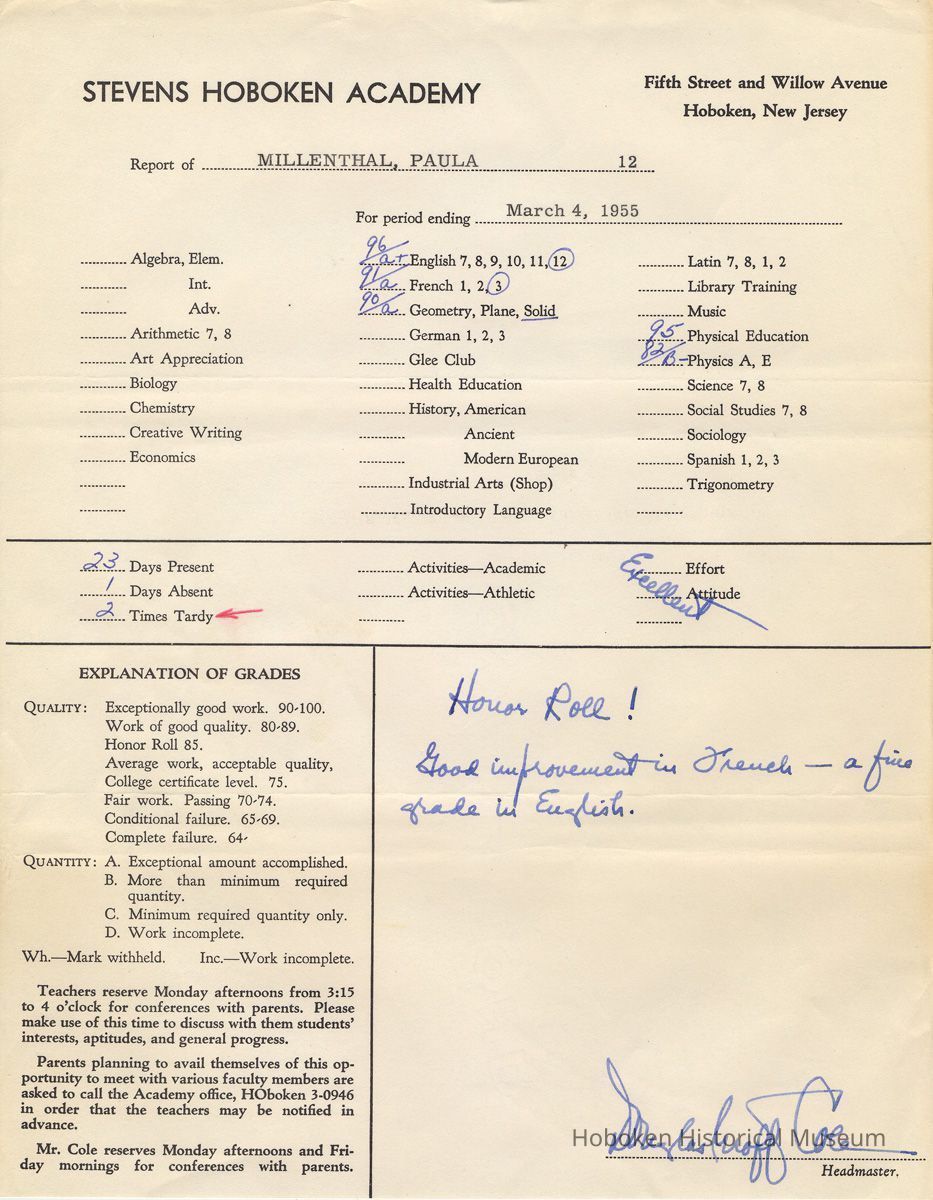 STEVENS HOBOKEN ACADEMY
Fifth Street and Willow Avenue
Hoboken, New Jersey
Report of MILLENTHAL, PAULA 12
For period ending March 4, 1955
Algebra, Elem.
Int.
Adv.
Arithmetic 7, 8
Art Appreciation
Biology
Chemistry
Creative Writing
Economics
96/a+ English 7, 8, 9, 10, 11, 12
91/a French 1, 2, 3
90/a Geometry, Plane, Solid
German 1, 2, 3
Glee Club
Health Education
History, American
Ancient
Modern European
Industrial Arts (Shop)
Introductory Language
Latin 7, 8, 1, 2
Library Training
Music
95 Physical Education
82/B- Physics A, E
Science 7, 8
Social Studies 7, 8
Sociology
Spanish 1, 2, 3
Trigonometry
23 Days Present
1 Days Absent
2 Times Tardy
Activities—Academic
Activities—Athletic
Effort
Excellent
Attitude
EXPLANATION OF GRADES
QUALITY: Exceptionally good work. 90-100.
Work of good quality. 80-89.
Honor Roll 85.
Average work, acceptable quality,
College certificate level. 75.
Fair work. Passing 70-74.
Conditional failure. 65-69.
Complete failure. 64-
QUANTITY: A. Exceptional amount accomplished.
B. More than minimum required
quantity.
C. Minimum required quantity only.
D. Work incomplete.
Wh.—Mark withheld. Inc.—Work incomplete.
Teachers reserve Monday afternoons from 3:15
to 4 o'clock for conferences with parents. Please
make use of this time to discuss with them students'
interests, aptitudes, and general progress.
Parents planning to avail themselves of this op-
portunity to meet with various faculty members are
asked to call the Academy office, HOboken 3-0946
in order that the teachers may be notified in
advance.
Mr. Cole reserves Monday afternoons and Fri-
day mornings for conferences with parents.
Honor Roll !
Good improvement in French — a fine
grade in English.
Douglas Groff Cole
Hoboken Historical Museum
Headmaster.